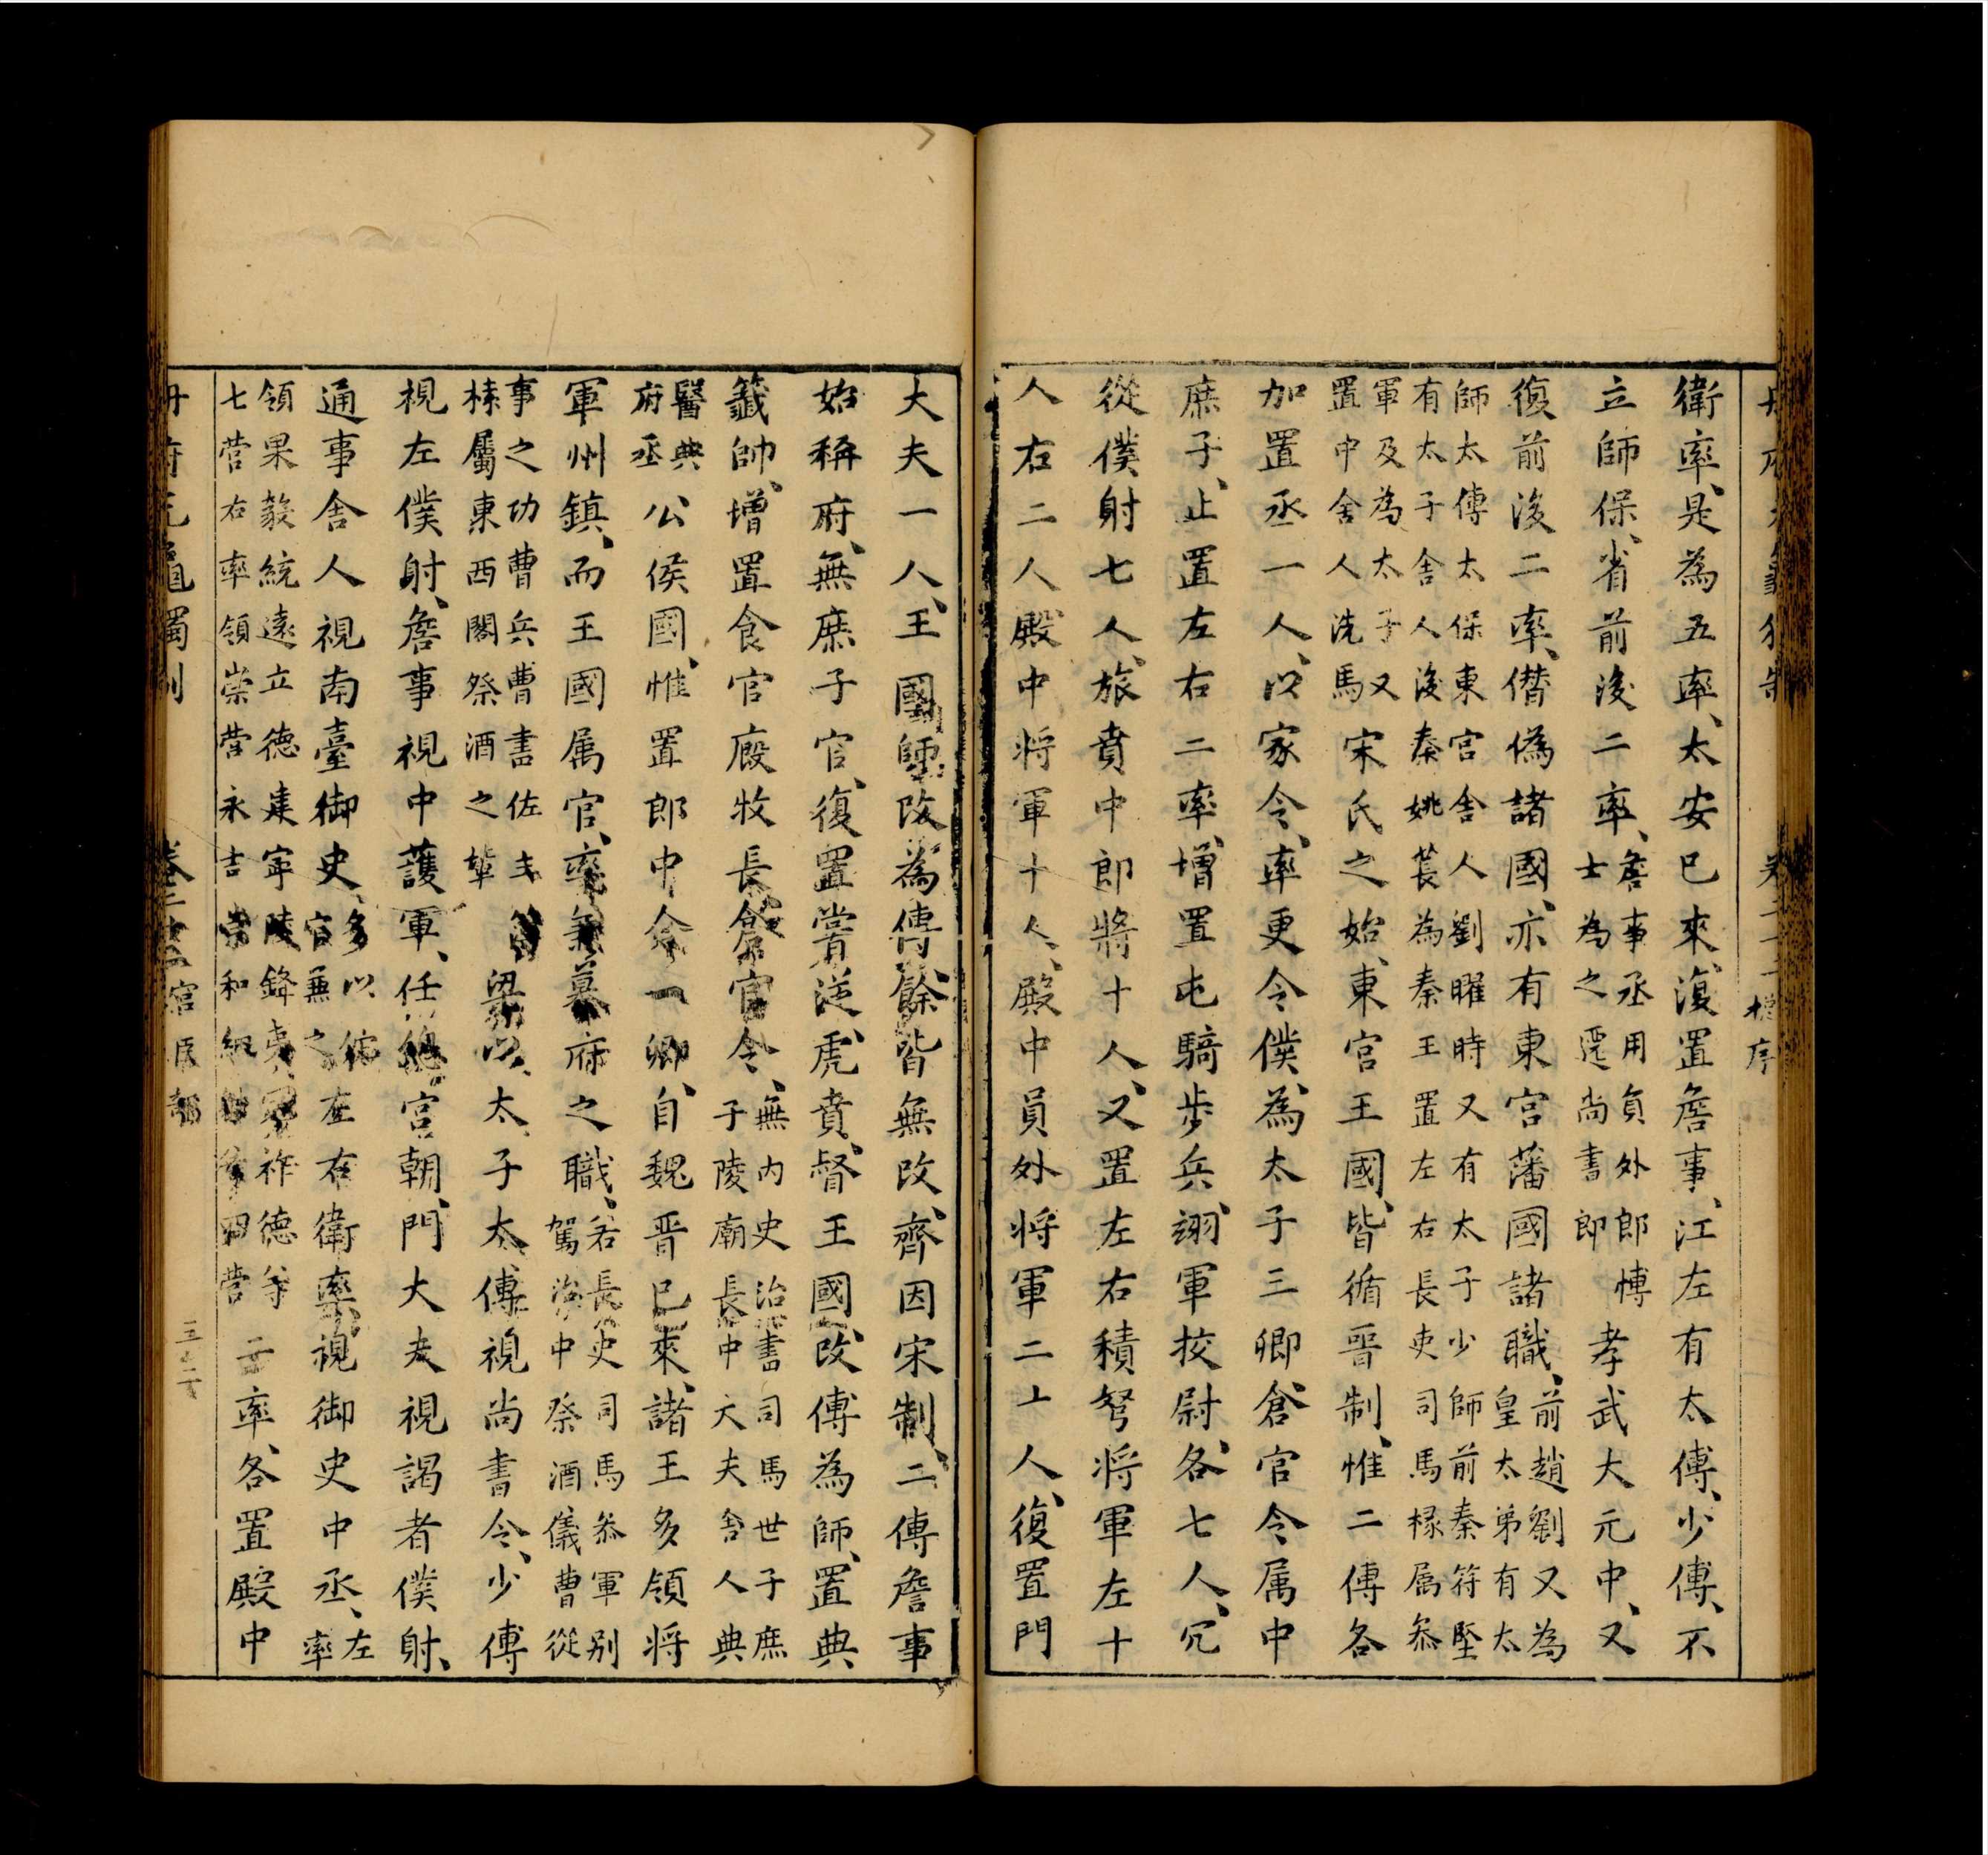 衛率、是為五率、太安已來、復置詹事、江左有太傅、少傅、不
立師保、省前後二率、詹事丞用負外郎愽士為之遷尚書郎孝武大元中、又
復前後二率、僣偽諸國、亦有東宮藩國諸職、前趙劉又為皇太弟有太
師太傅太保東宮舍人劉曜時又有太子少師前秦符堅有太子舍人後秦姚萇為秦王置左右長吏司馬椽属叅
軍及為太子又置中舍人洗馬宋氏之始、東宮王國、皆循晋制、惟二傅各
加置丞一人、以家令、率更令僕、為太子三卿、倉官令属中
庶子、止置左右二率、增置屯騎步兵、翊軍挍尉、各七人、冗
從僕射七人、旅賁中郎將十人、又置左右積弩将軍左十
人右二人殿中将軍十人、殿中員外将軍二十人、復置門
大夫一人、王國師改為傅餘皆無改、齊因宋制、二傅詹事
始稱府、無庶子官、復置嘗從虎賁、督王國改傅為師、置典
籤帥、增置食官廄牧長倉官令、無内史治書司馬世子庶子陵廟長中大夫舍人典
醫典府丞公侯國、惟置郎中令一卿、自魏晋已來、諸王多領将
軍州鎮、而王國属官、率兼幕府之職、若長史司馬叅軍别駕治中祭酒儀曹從
事之功曹兵曹書佐主椽屬東西閣祭酒之輩梁以太子太傅視尚書令、少傅
視左僕射、詹事視中護軍、任總宮朝、門大夫視謁者僕射、
通事舍人視南臺御史、多以他官兼之左右衛率視御史中丞、左率
領果毅統遠立德建寧陵鋒夷寇祚德等七营右率領崇营永吉崇和細射等四营二率、各置殿中
宮臣部